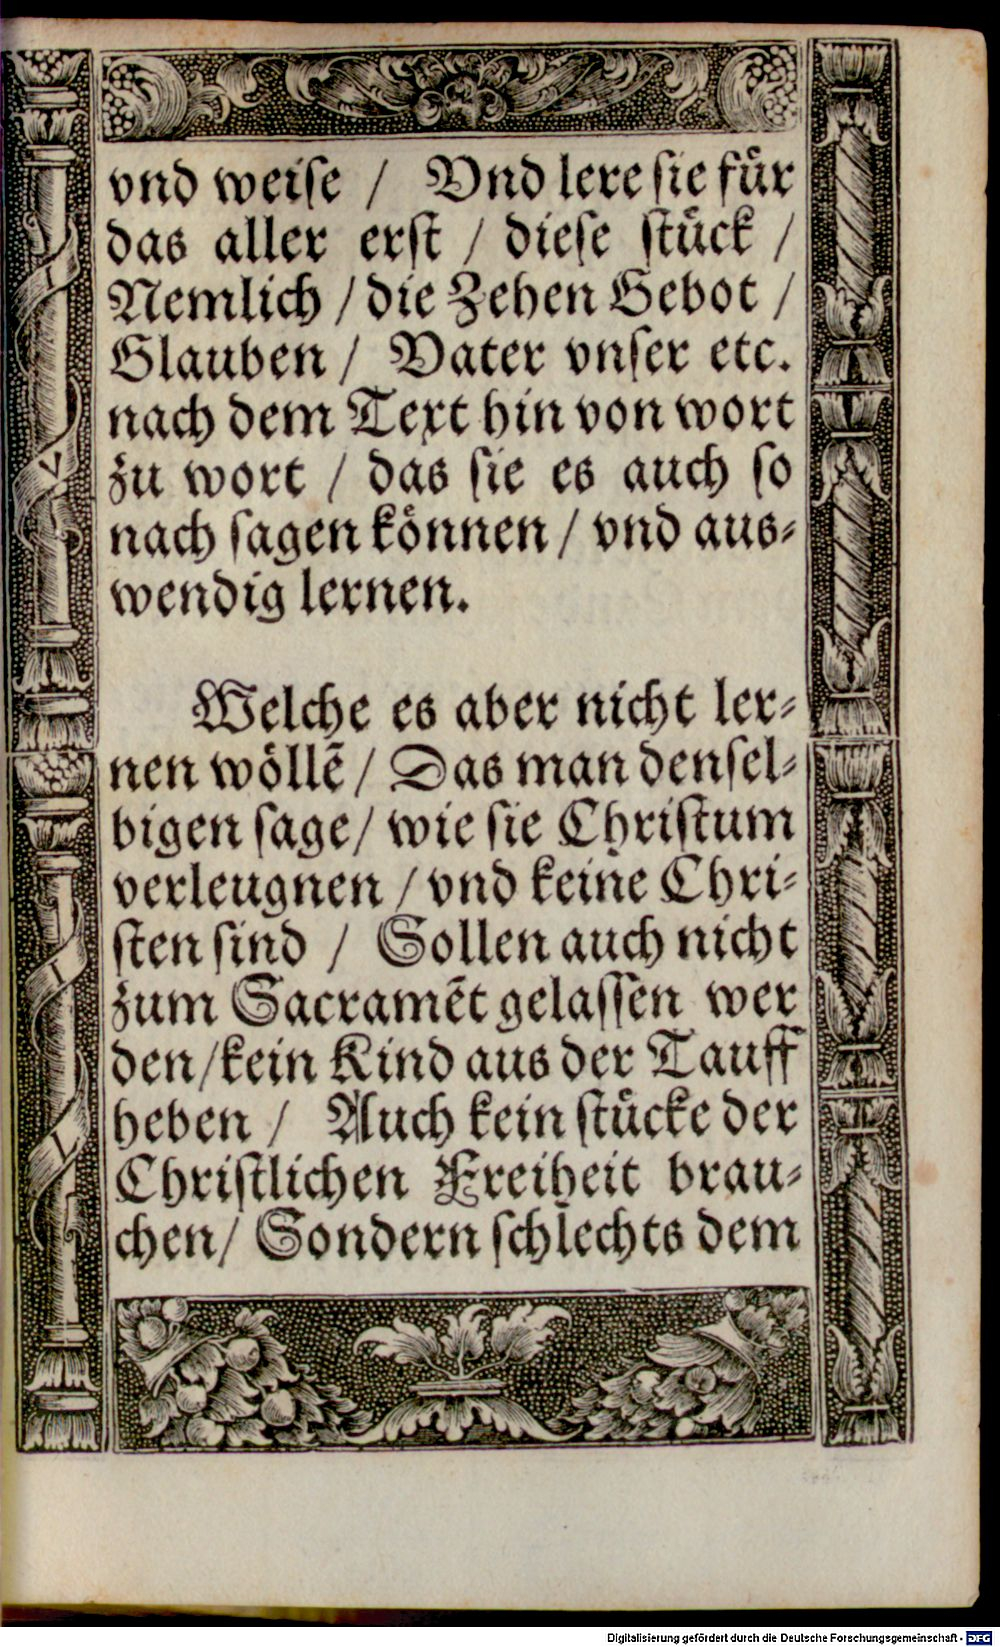 vnd weiſe / Vnd lere ſie fuͤr
das aller erſt / dieſe ſtuͤck /
Nemlich / die Zehen Gebot /
Glauben / Vater vnſer etc.
nach dem Text hin von wort
zu wort / das ſie es auch ſo
nach ſagen koͤnnen / vnd aus⸗
wendig lernen.
Welche es aber nicht ler⸗
nen woͤllẽ / Das man denſel⸗
bigen ſage / wie ſie Chriſtum
verleugnen / vnd keine Chri⸗
ſten ſind / Sollen auch nicht
zum Sacramẽt gelaſſen wer
den / kein Kind aus der Tauff
heben / Auch kein ſtuͤcke der
Chriſtlichen Freiheit brau⸗
chen / Sondern ſchlechts dem
Digitalisierung gefördert durch die Deutsche Forschungsgemeinschaft - DFG